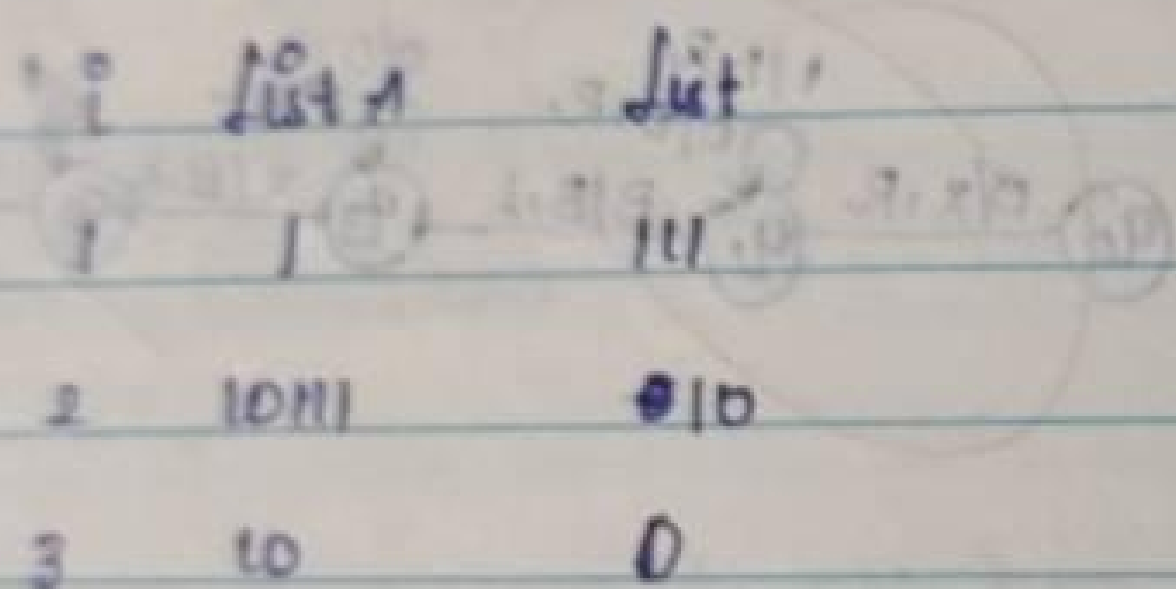 i List A List
1 1 111
2 10111 10
3 10 0